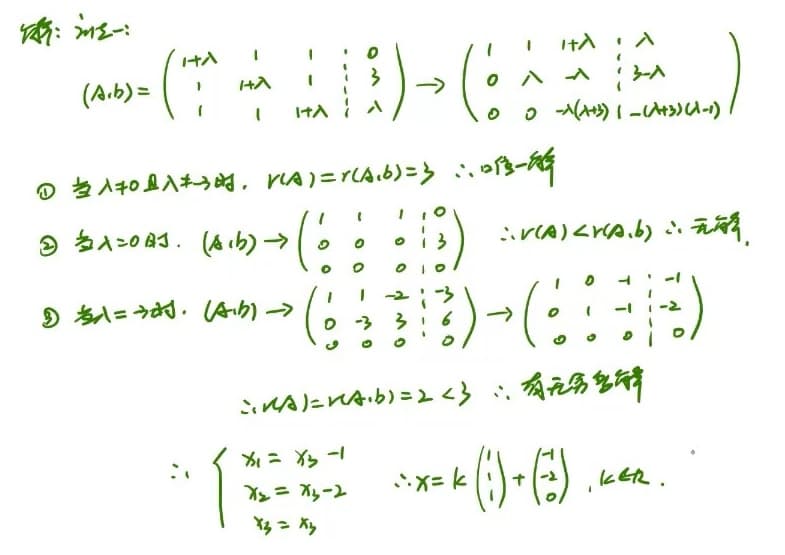 解: 法一:
(A,b) = ( 1+λ 1 1 ⋮ 0 ; 1 1+λ 1 ⋮ 3 ; 1 1 1+λ ⋮ λ ) → ( 1 1 1+λ ⋮ λ ; 0 λ -λ ⋮ 3-λ ; 0 0 -λ(λ+3) ⋮ -(λ+3)(λ-1) )
① 当λ≠0且λ≠-3时, r(A)=r(A,b)=3 ∴唯一解
② 当λ=0时. (A,b) → ( 1 1 1 ⋮ 0 ; 0 0 0 ⋮ 3 ; 0 0 0 ⋮ 0 ) ∴r(A)<r(A,b) ∴无解.
③ 当λ=-3时. (A,b) → ( 1 1 -2 ⋮ -3 ; 0 -3 3 ⋮ 6 ; 0 0 0 ⋮ 0 ) → ( 1 0 -1 ⋮ -1 ; 0 1 -1 ⋮ -2 ; 0 0 0 ⋮ 0 )
∴r(A)=r(A,b)=2<3 ∴有无穷多解
∴ { x₁=x₃-1 ; x₂=x₃-2 ; x₃=x₃ ∴x=k ( 1 ; 1 ; 1 ) + ( -1 ; -2 ; 0 ) , k∈R.